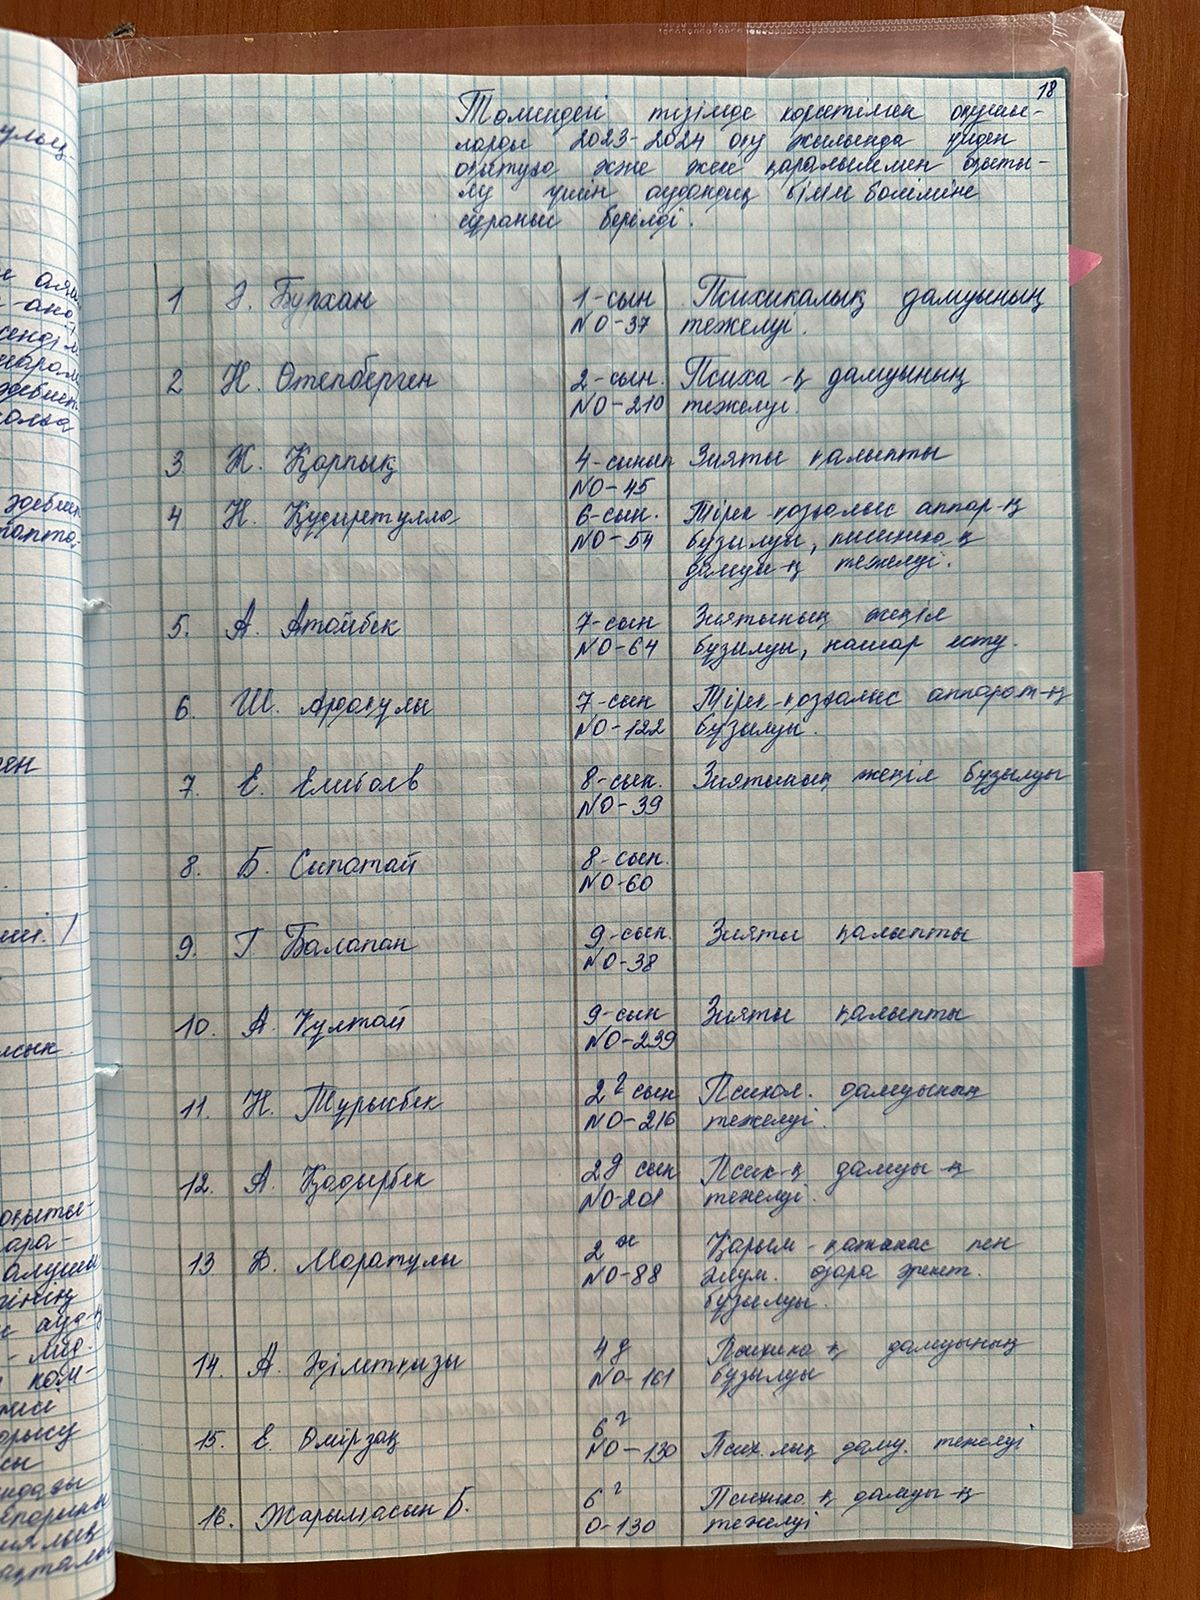 18
Төмендегі тізімде көрсетілген оқушы-
ларды 2023-2024 оқу жылында үйден
оқытуға және жеке қаралыммен оқыты-
лу үшін аудандық білім бөліміне
сұраныс берілді.
1 Ә. Бупхан 1-сын Психикалық дамуының
NO-37 тежелуі.
2 Н. Өтепберген 2-сын. Психа-қ дамуының
NO-210 тежелуі.
3. Ж. Қарпық 4-сынып Зияты қалыпты
NO-45
4 Н. Құдиретулла 6-сын. Тірек-қозғалыс аппар-ң
NO-54 бұзылуы, психика-қ
дамуы-ң тежелуі.
5. А. Атайбек 7-сын Зиятының жеңіл
NO-64 бұзылуы, нашар есту.
6. Ш. Ардақұлы 7-сын Тірек-қозғалыс аппарат-ң
NO-122 бұзылуы.
7. Е. Елибаев 8-сын. Зиятының жеңіл бұзылуы
NO-39
8. Б. Сипатай 8-сын.
NO-60
9. Г. Балапан 9-сын. Зияты қалыпты
NO-38
10. А. Құлтай 9-сын Зияты қалыпты
NO-239
11. Н. Тұрысбек 2 г сын Психол. дамуының
NO-216 тежелуі.
12. А. Қадырбек 2 д сын Псих-қ дамуы-ң
NO-201 тежелуі.
13 Д. Маратұлы 2 ж Қарым-қатынас пен
NO-88 әлеум. өзара әрект.
бұзылуы.
14. А. Әділетқызы 4 д Психика-қ дамуының
NO-161 бұзылуы
15. Е. Өмірзақ 6 г
NO-130 Псих.лық даму. тежелуі
16. Жарылқасын Б. 6 г Психика-қ дамуы-ң
0-130 тежелуі